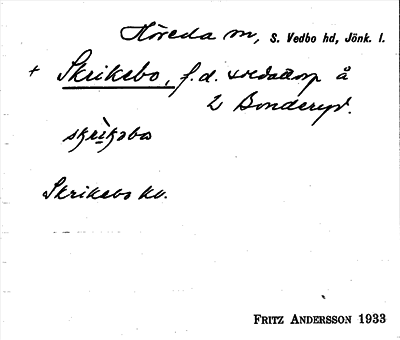 Höreda sn, S. Vedbo hd, Jönk. l.
+ Skrikebo, f.d. soldattorp å
2 Bonderyd.
skrìkəbo
Skrikebo kv.
FRITZ ANDERSSON 1933